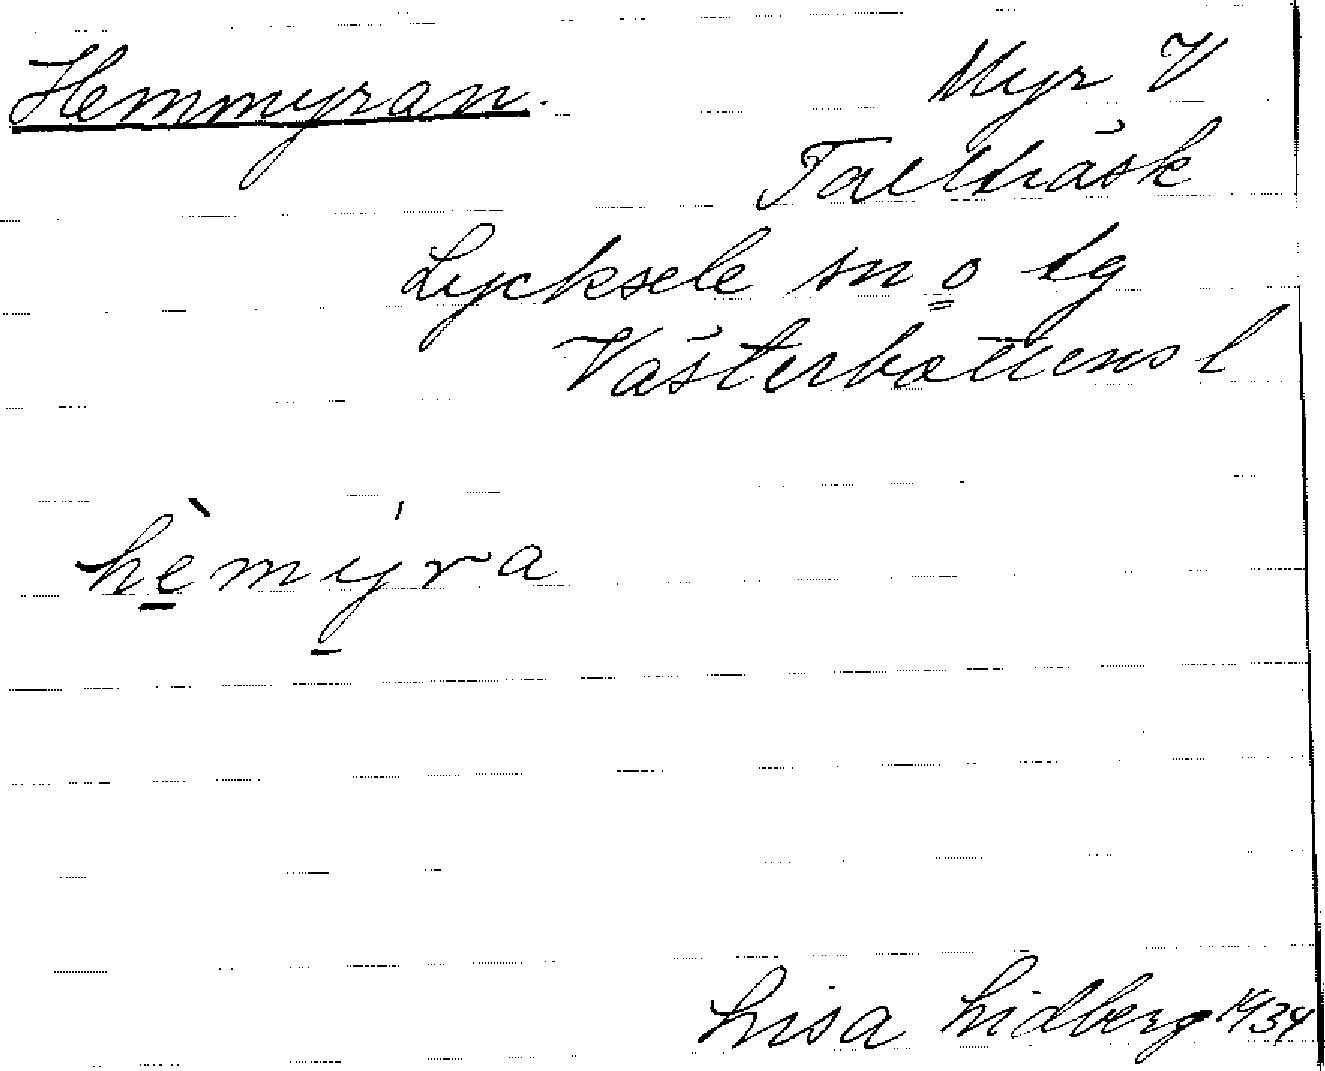 Hemmyran. Myr V
Tallträsk
Lycksele sn o lg
Västerbottens l
hèmýra
Lisa Lidberg 1934